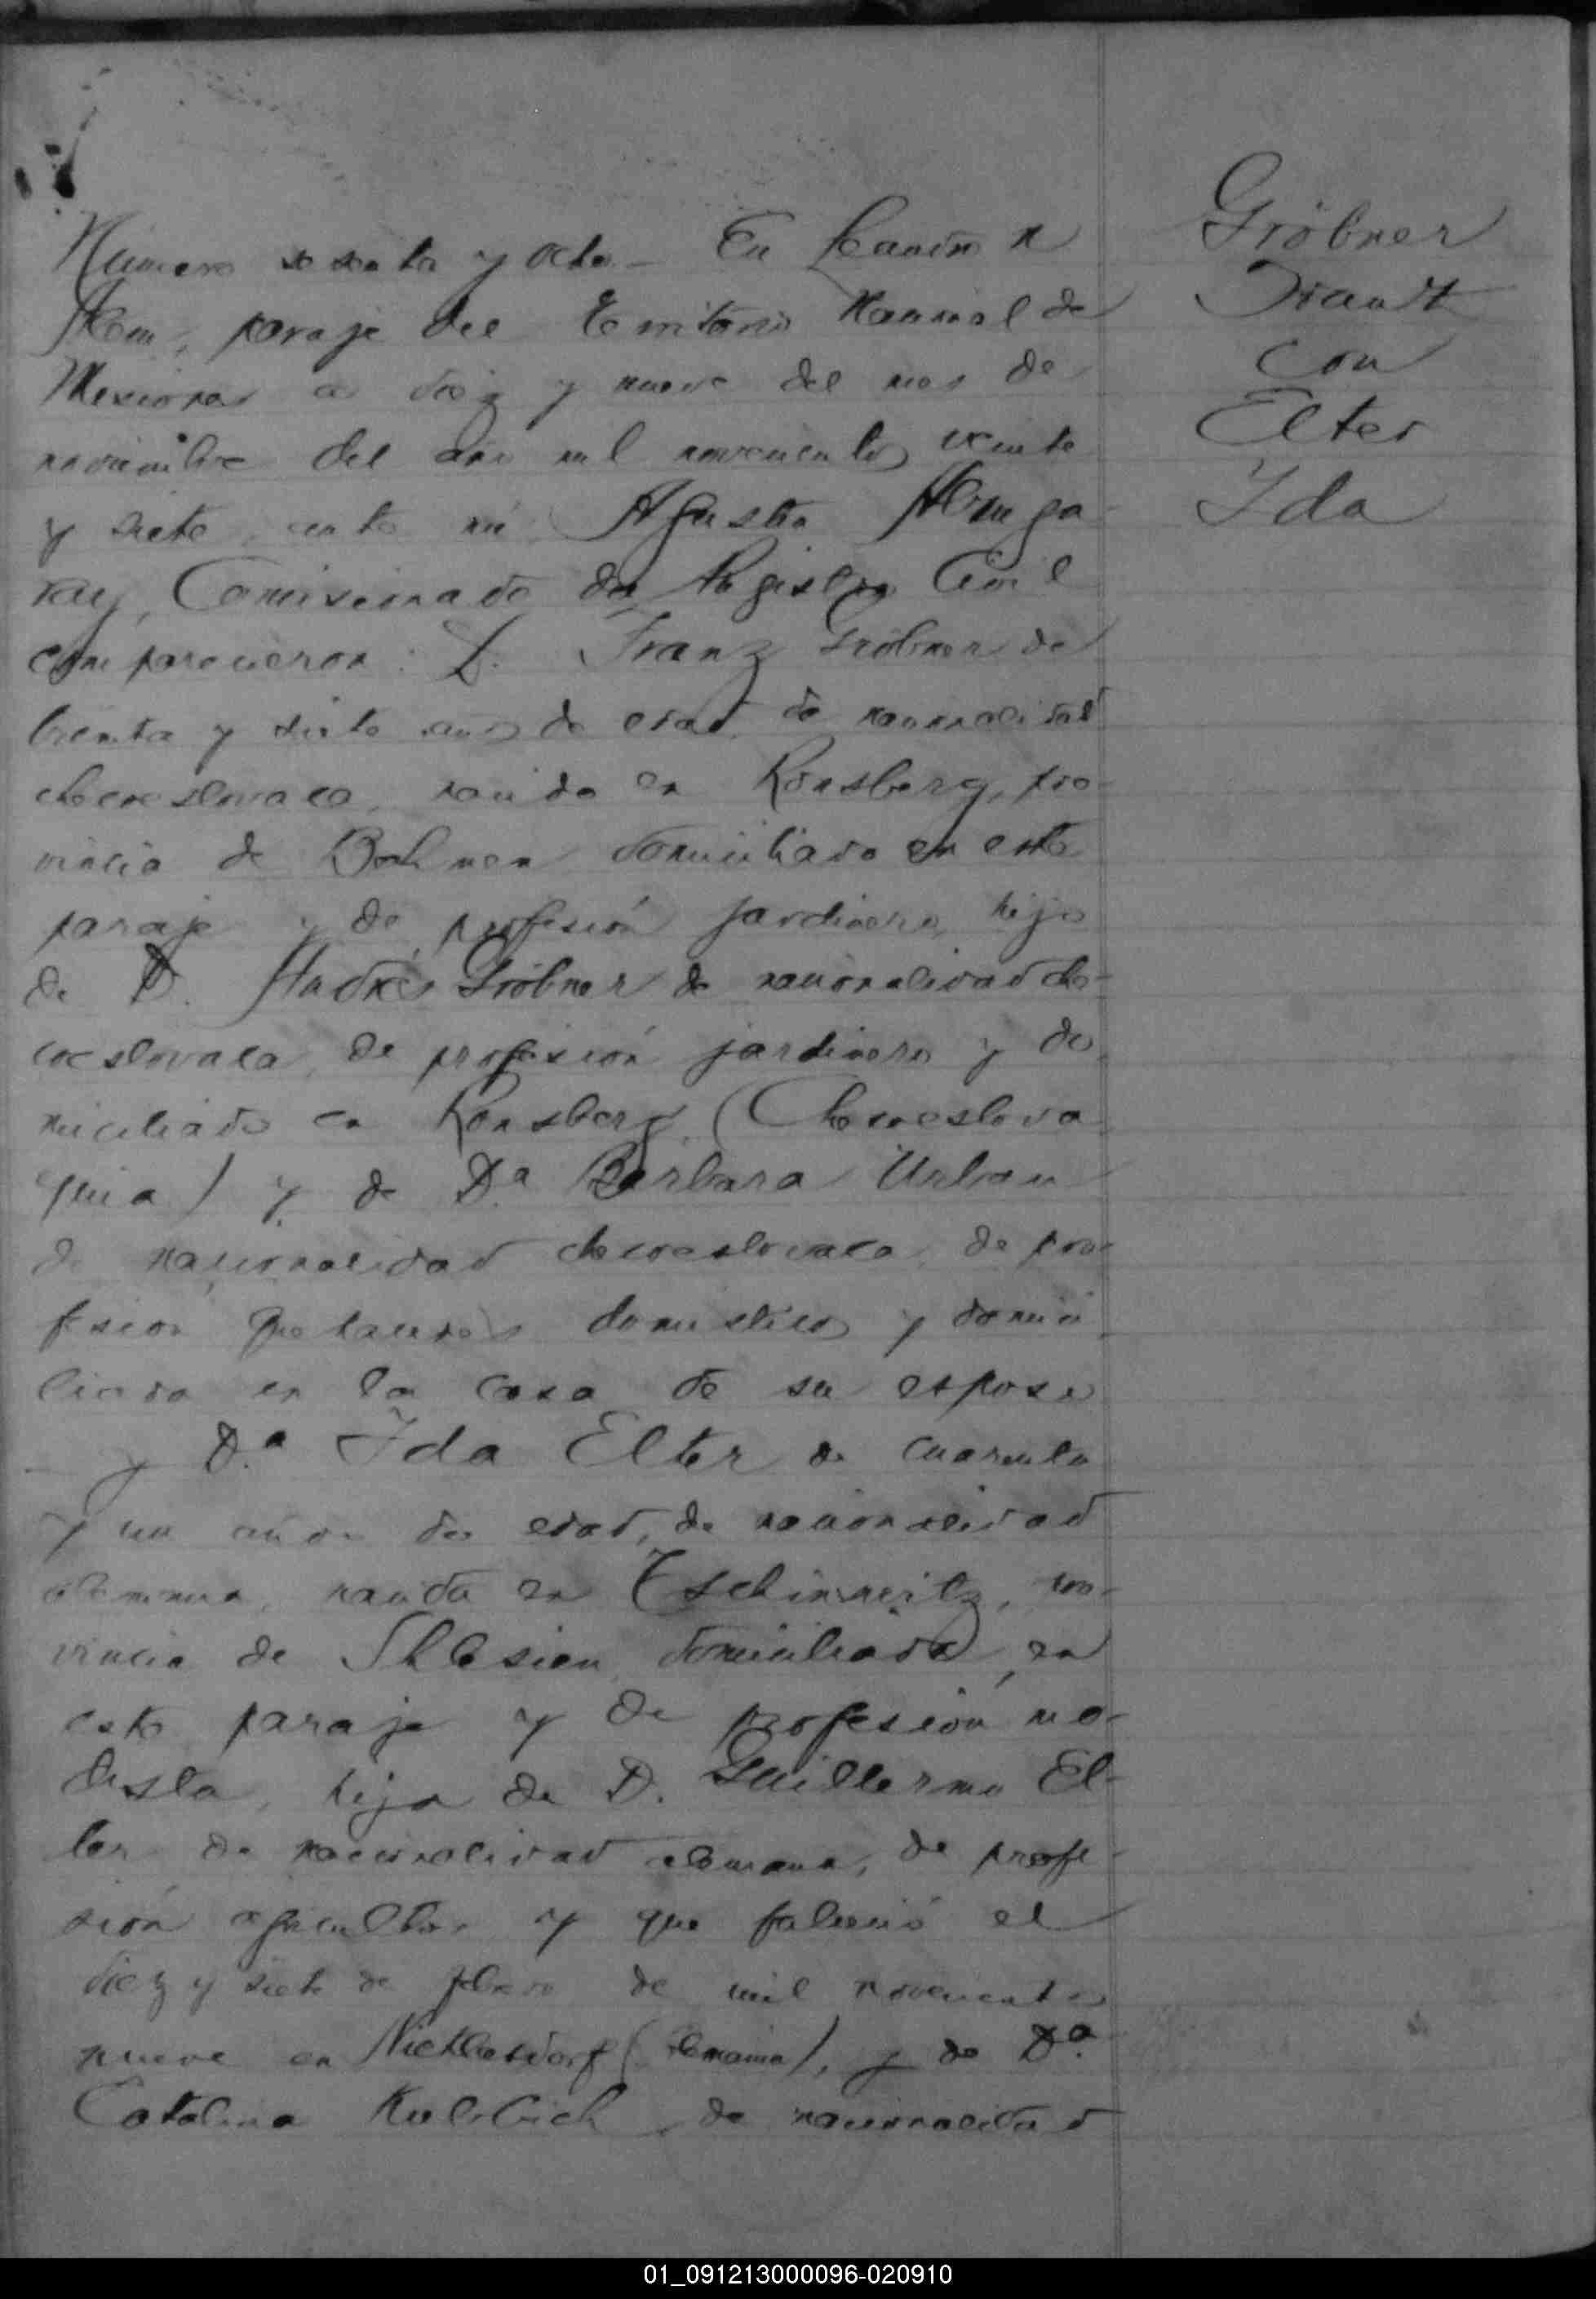 Número sesenta y ocho – En Leandro N
Alem, paraje del Territorio Nacional de
Misiones a diez y nueve del mes de
noviembre del año mil novecientos veinte
y siete, ante mí Agustín
Comisionado del Registro Civil
comparecieron: D. Franz Gröbner de
treinta y siete años de edad, de nacionalidad
checoeslovaca, nacido en Ronsberg, pro-
vincia de Bohmen domiciliado en este
paraje y de profesión jardinero, hijo
de D. Andrés Gröbner de nacionalidad che-
coeslovaca, de profesión jardinero y do
miciliado en Ronsberg (Checoeslova
quia) y de Da Barbara Urban
de nacionalidad checoeslovaca, de pro-
fesión quehaceres domesticos y domici
liada en la casa de su esposo
y Da. Ida Elter de cuarenta
y un años de edad, de nacionalidad
alemana, nacida en Tschinneitz, pro-
vincia de Shlesien domiciliada en
este paraje y de profesión mo-
dista, hija de D. Guillermo El-
ter de nacionalidad alemana, de profe-
sión agricultor y que falleció el
diez y siete de febrero de mil novecientos
nueve en (Alemania), y de Da.
Catalina de nacionalidad
Gröbner
Franz
con
Elter
Ida
01_091213000096-020910